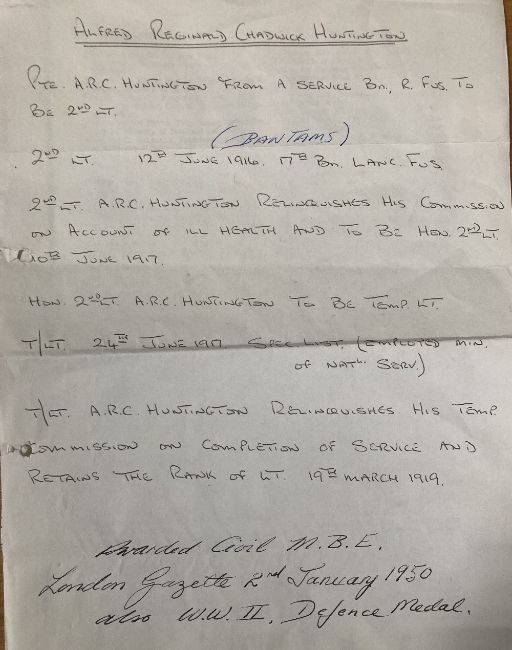 ALFRED REGINALD CHADWICK HUNTINGTON
PTE. A.R.C. HUNTINGTON FROM A SERVICE BN., R. FUS. TO
BE 2ND LT.
(BANTAMS)
2ND LT. 12TH JUNE 1916. 17TH BN. LANC. FUS
2ND LT. A.R.C. HUNTINGTON RELINQUISHES HIS COMMISSION
ON ACCOUNT OF ILL HEALTH AND TO BE HON. 2ND LT.
10TH JUNE 1917.
HON. 2ND LT. A.R.C. HUNTINGTON TO BE TEMP. LT.
T/LT. 24TH JUNE 1917 SPEC LIST. (EMPLOYED MIN.
OF NATL. SERV.)
T/LT. A.R.C. HUNTINGTON RELINQUISHES HIS TEMP.
COMMISSION ON COMPLETION OF SERVICE AND
RETAINS THE RANK OF LT. 19TH MARCH 1919.
Awarded Civil M.B.E.
London Gazette 2nd January 1950
also W.W. II, Defence Medal.